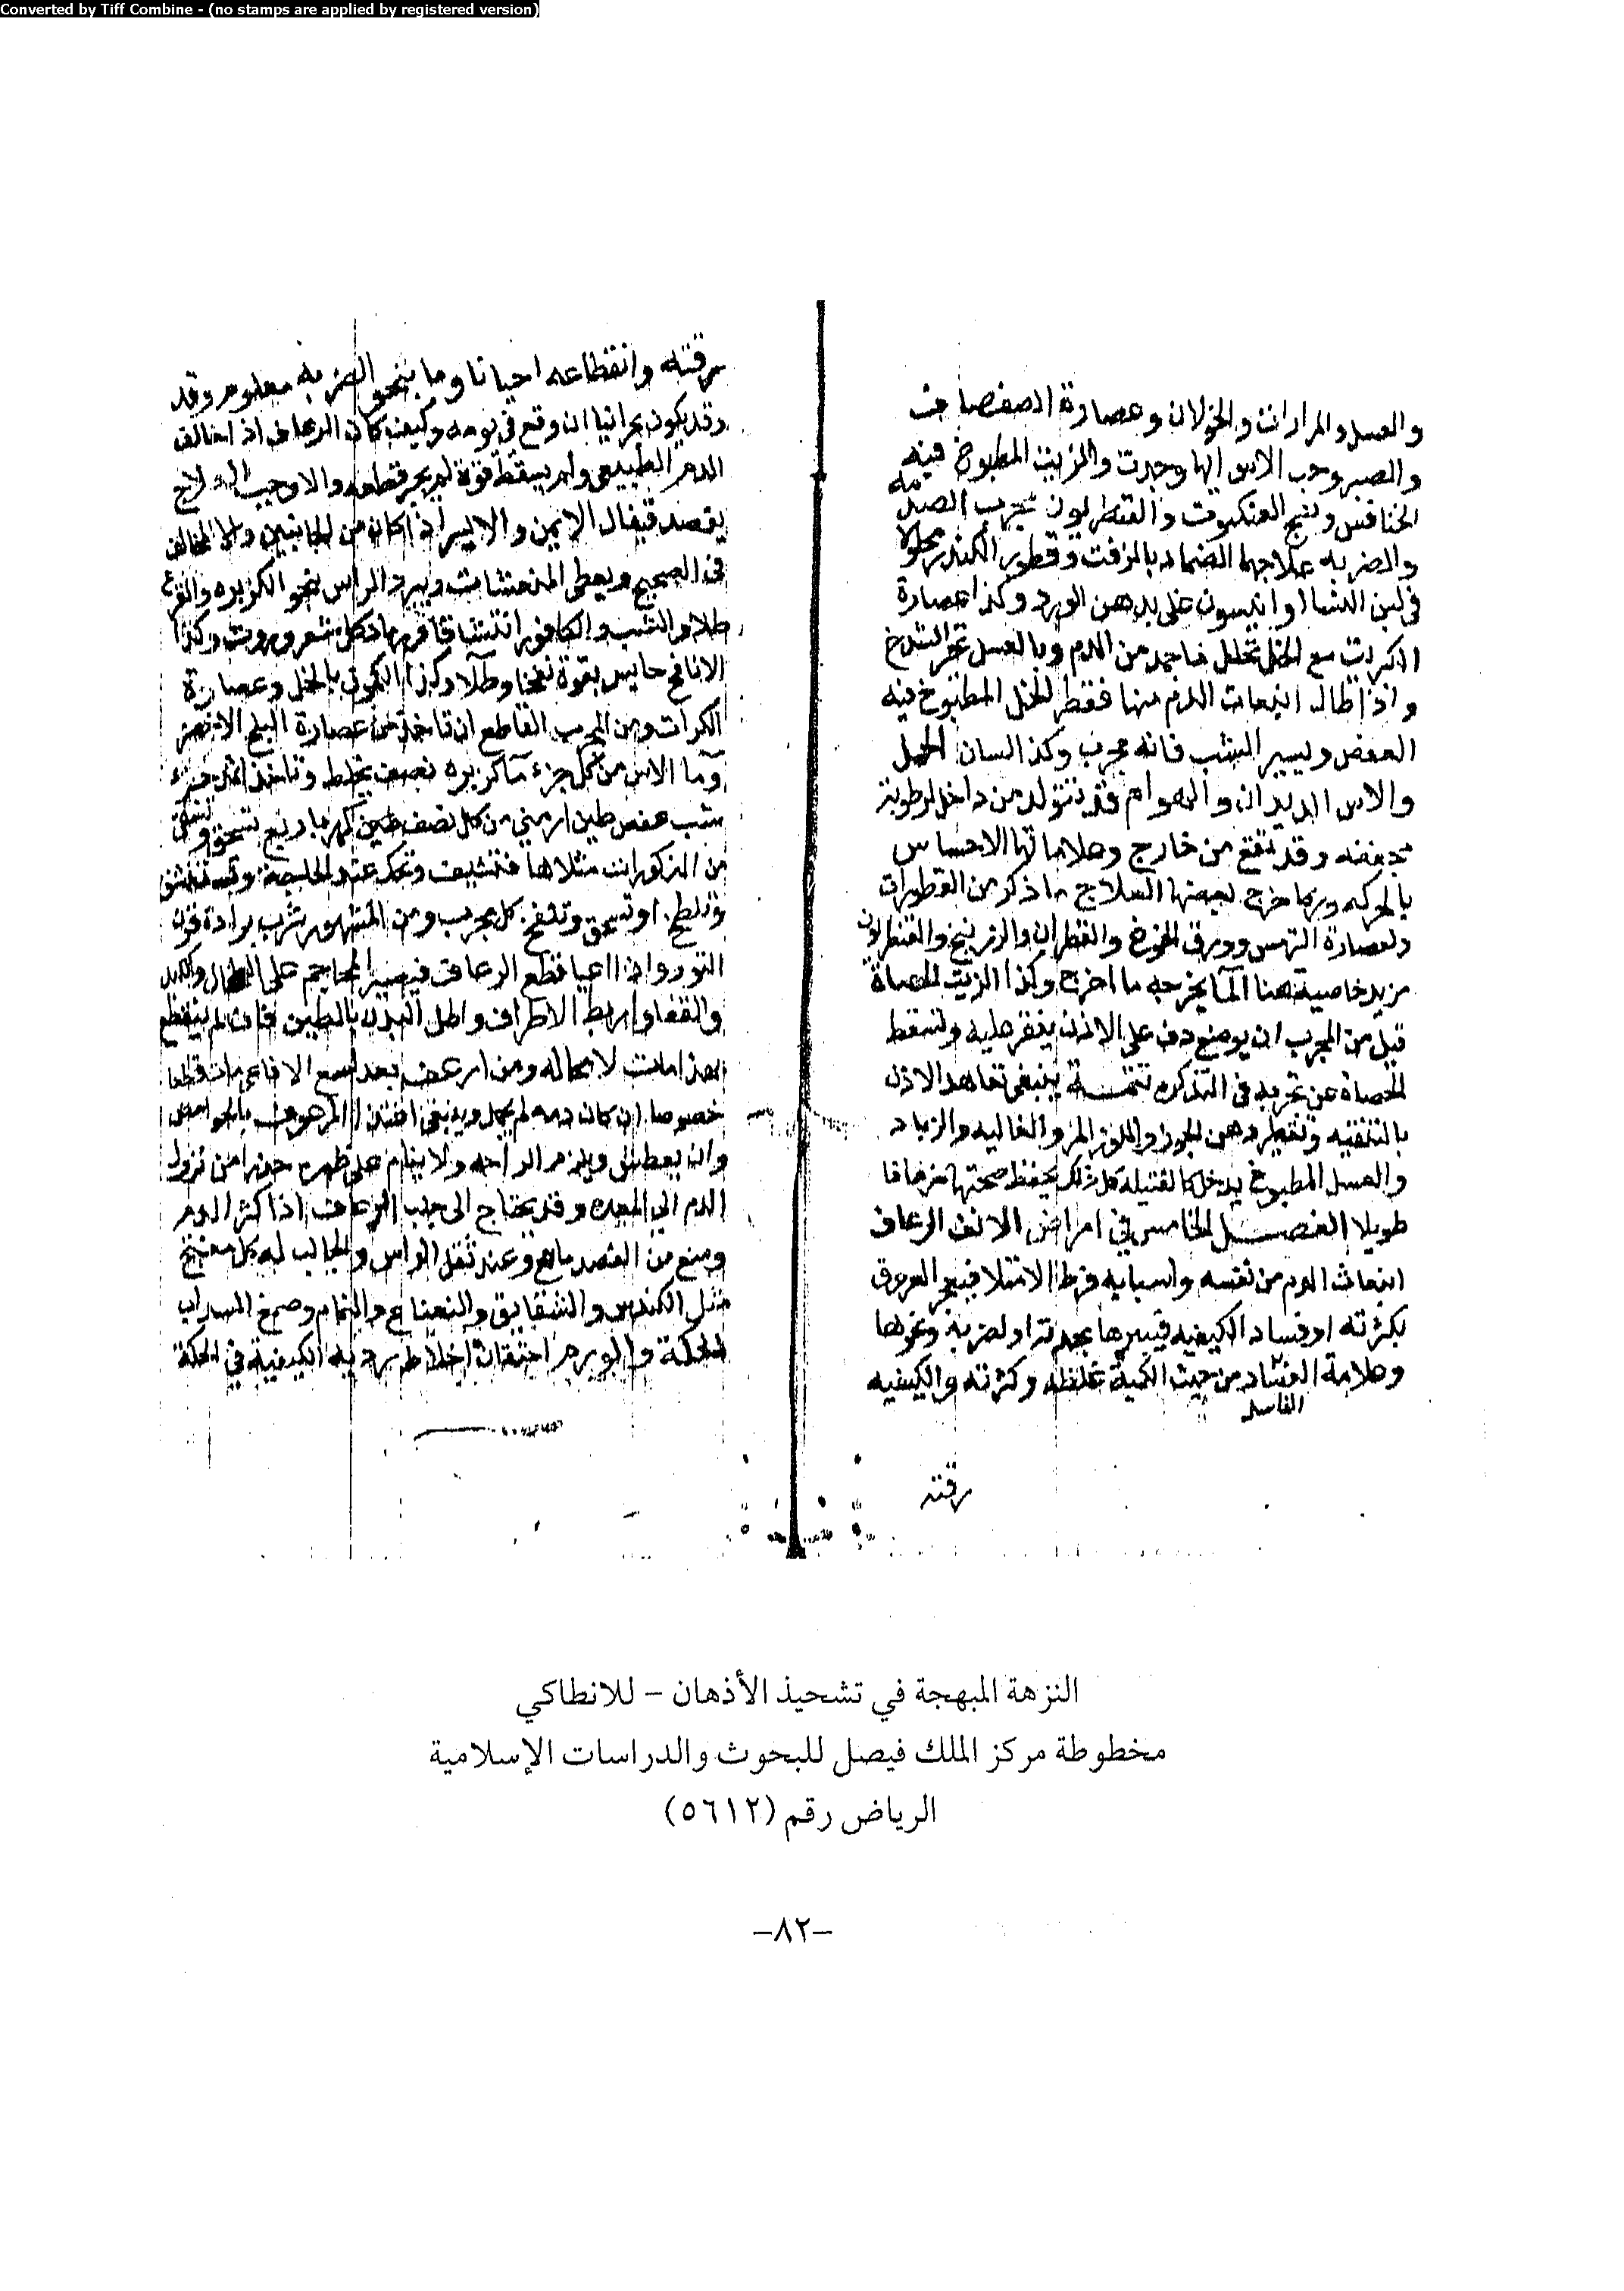 Converted by Tiff Combine - (no stamps are applied by registered version)
والعسل والمرارات والخولان وعصارة الصفصاف
والصبر وحب الاس ايها وجدت والزيت المطبوخ فيه
الخنافس ونسج العنكبوت والقنطريون مجرب الصدمه
والضربه علاجها الضماد بالزفت وقطور الكندر محلولا
في لبن النسا او انيسون على بدهن الورد وكذا عصارة
الكراث مع الخل تحلل ما جمد من الدم وبالعسل
واذا طال انبعاث الدم منها فقطر الخل المطبوخ فيه
العفص ويسير الشب فانه مجرب وكذا لسان الحمل
والاس الديدان والهوام قد تتولد من داخل لرطوبة
وقد تقع من خارج وعلاماتها الاحساس
بالحركه وربما خرج بعضها العلاج ما ذكر من القطورات
ولعصارة الترمس وورق الخوخ والقطران والزرنيخ والقنطريون
مزيد خاصية هنا الما يخرجه ما اخرج وكذا الزيت الحصاة
قيل من المجرب ان يوضع دف على الاذن ينقر عليه وتسقط
الحصاة عن تجربه في التذكره تتمة ينبغي تعاهد الاذن
بالتنقيه وتقطير دهن الجوز واللوز المر والغاليه والزباد
والعسل المطبوخ يدخل كالفتيله كل ذلك يحفظ صحتها زمانا
طويلا الفصل الخامس في امراض الانف الرعاف
انبعاث الدم من نفسه واسبابه فرط الامتلا فيفجر العروق
بكثرته او فساد الكيفيه بحده او لضربة ونحوها
وعلامة الفساد من حيث الكمية غلظه وكثرته والكيفيه
الفاسد
رقته
رقته وانقطاعه احيانا وما بنحو الضربه معلوم وقد
وقد يكون بحرانيا ان وقع في يومه وكيف كان الرعاف اذا خالف
الدم الطبيعي ولم يسقط قوة لم يجز قطعه والا وجب العلاج
يفصد قيفال الايمن والايسر اذا كان من الجانبين والا المخالف
في الصحيح ويعطى المنعشات ويبرد الراس بنحو الكزبره والقرع
طلا والشب والكافور انتشاقا ورماد كل شعر وروث وكذا
الانافح حابس بقوة نفخا وطلا وكذا الكمون بالخل وعصارة
الكراث ومن المجرب القاطع ان تاخذ من عصارة البلح الاخضر
وما الاس من كل جزء ما كزبره نصف يخلط وتاخذ جزء
شب عفص طين ارمني من كل نصف طين كهربا ربع تسحق وتسقى
من المذكورات مثلاها
وتلطخ او تسحق وتنفخ كل مجرب ومن المشهور شرب برادة قرن
الثور واذا اعيا قطع الرعاف المحاجم على الطحال والكبد
والقفا واربط الاطراف واطل البدن بالطين فان لم ينقطع
بهذا مات لا محاله ومن ارعف بعد لسع الافاعي مات قطعا
خصوصا ان كان دمه لم يجمد وينبغي اغتذا المرعوف بالحوامض
وان يعطش ويلزم الراحه ولا ينام على ظهره حذرا من نزول
الدم الى المعده وقد يحتاج الى جلب الرعاف اذا كثر الدم
ومنع من الفصد مانع وعند ثقل الراس والجالب له كل مفتح
مثل الكندس والشقايق والنعناع والنمام وصمغ السداب
الحكة والورم احتقان اخلاط رديه الكيفية في الحكة
النزهة المبهجة في تشحيذ الأذهان – للانطاكي
مخطوطة مركز الملك فيصل للبحوث والدراسات الإسلامية
الرياض رقم (٥٦١٢)
–٨٢–